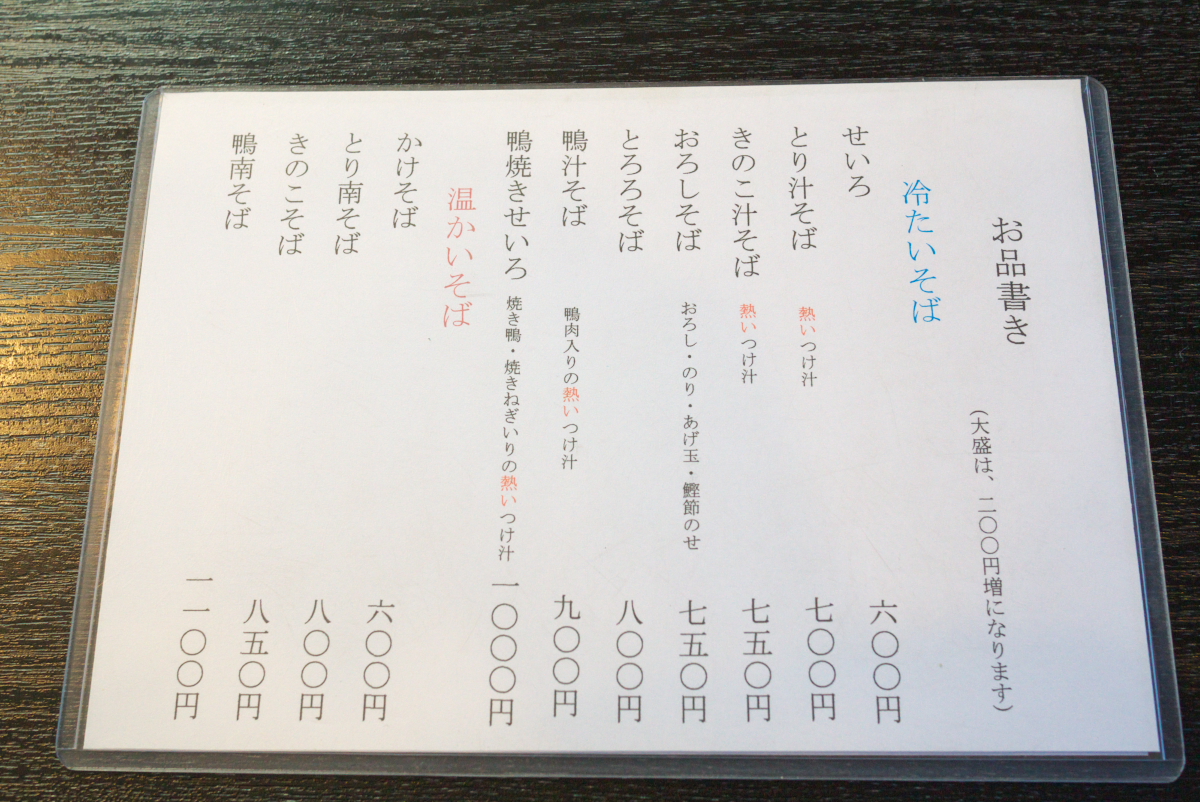 お品書き
(大盛は、二〇〇円増になります)
冷たいそば
せいろ 六〇〇円
とり汁そば 熱いつけ汁 七〇〇円
きのこ汁そば 熱いつけ汁 七五〇円
おろしそば おろし・のり・あげ玉・鰹節のせ 七五〇円
とろろそば 八〇〇円
鴨汁そば 鴨肉入りの熱いつけ汁 九〇〇円
鴨焼きせいろ 焼き鴨・焼きねぎいりの熱いつけ汁 一〇〇〇円
温かいそば
かけそば 六〇〇円
とり南そば 八〇〇円
きのこそば 八五〇円
鴨南そば 一一〇〇円